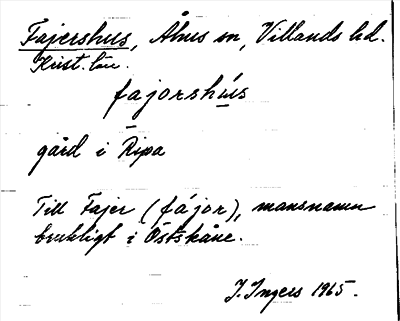 Fajershus, Åhus sn, Villands hd.
Krist. län.
fajorshús
gård i Ripa
Till Fajer (fájor), mansnamn
brukligt i Östskåne.
I. Ingers 1965.